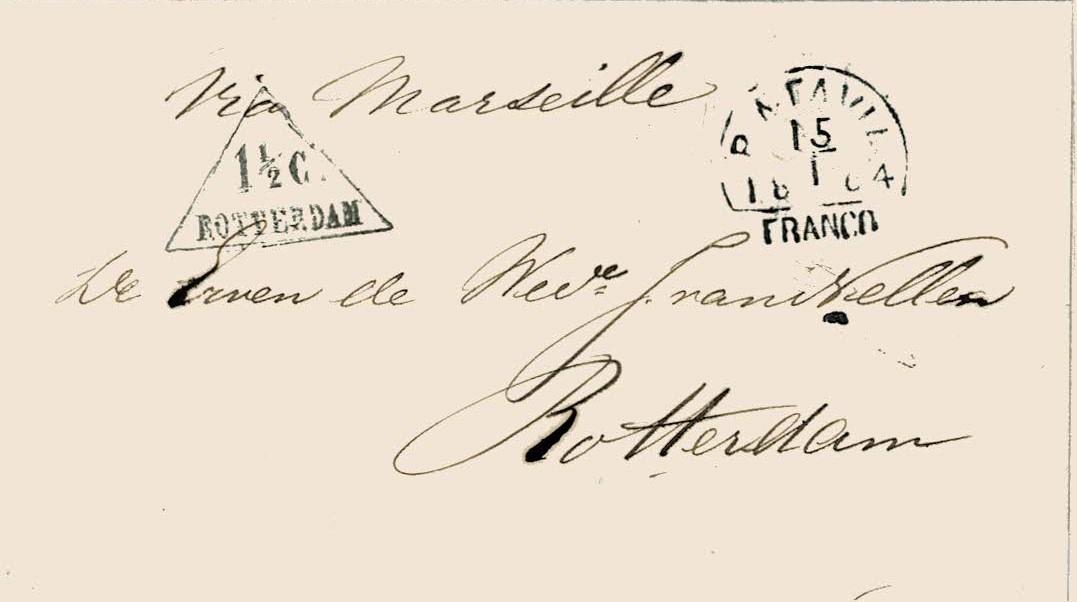 Via Marseille
1½ C.
ROTTERDAM
BATAVIA
15
1
1864
FRANCO
De Erven de Wedve J. van Nellen
Rotterdam